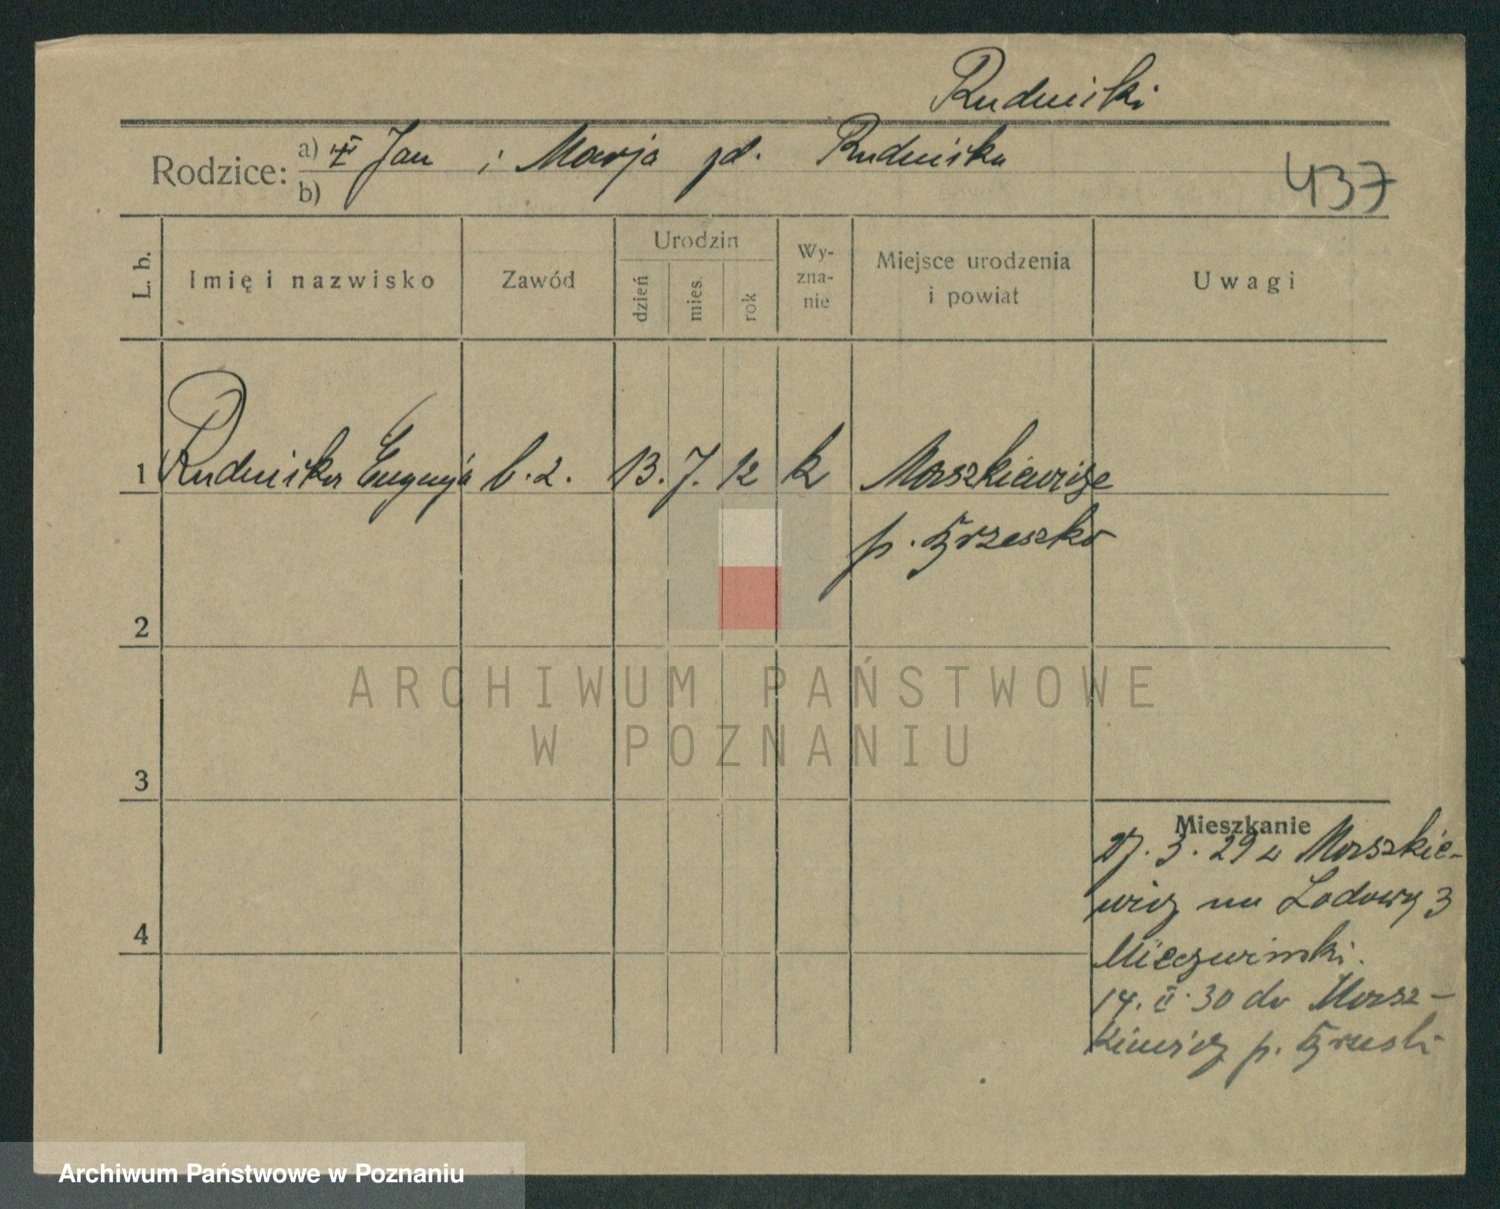 Rudnicki
Rodzice: a) Jan i Marja zd. Rudnicka
b)
437
L. b.
Imię i nazwisko
Zawód
Urodzin
dzień
mies.
rok
Wy-
zna-
nie
Miejsce urodzenia
i powiat
Uwagi
1 Rudnicka Eugenja b. z. 13. 7. 12 k
2
3
4
Mieszkanie
27. 3. 29 z Morszkie-
wicz na Lodowy 3
14. II. 30 do Morsz-
kiewicz p.
ARCHIWUM PAŃSTWOWE
W POZNANIU
Archiwum Państwowe w Poznaniu